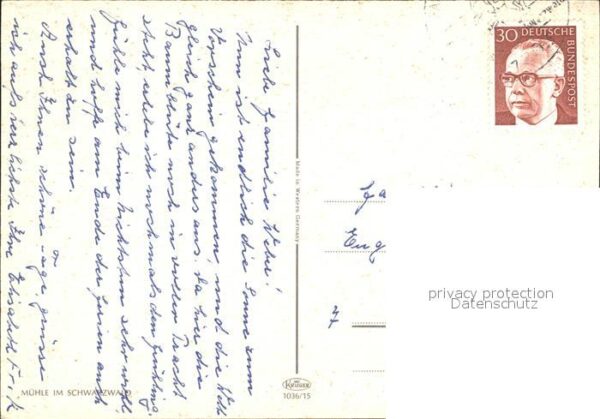 Liebe Familie Weber!
Nun ist endlich die Sonne zum
Vorschein gekommen, und die Welt
sieht gleich ganz anders aus. Da hier die
Baumblüte noch in voller Pracht
steht, erlebe ich nochmals den Frühling,
fühle mich beim Nichtstun sehr wohl
und hoffe am Ende der Ferien auch
erholt zu sein.
Auch Ihnen schöne Tage, grüsse
ich aufs herzlichste Ihre Elisabeth
MÜHLE IM SCHWARZWALD
Made in Western Germany
KRÜGER
1036/15
30 DEUTSCHE BUNDESPOST
Fa
Eug
7
privacy protection
Datenschutz